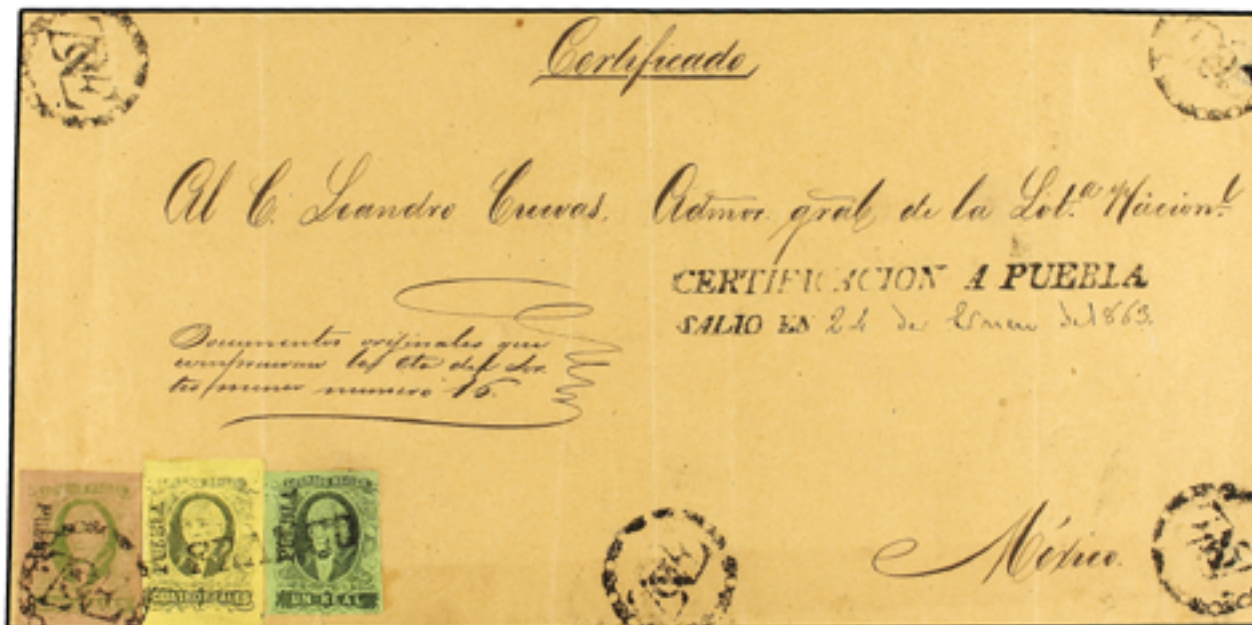 Certificado
Al C. Leandro Cuevas. Admor. gral de la Lot.ª Nacion.l
CERTIFICACION A PUEBLA
SALIO EN 24 de Enero de 1863.
Documentos originales que
comprueban la cta del Sor
teo menor numero 16.
PUEBLA
PUEBLA
CUATRO REALES
PUEBLA
UN REAL
México.